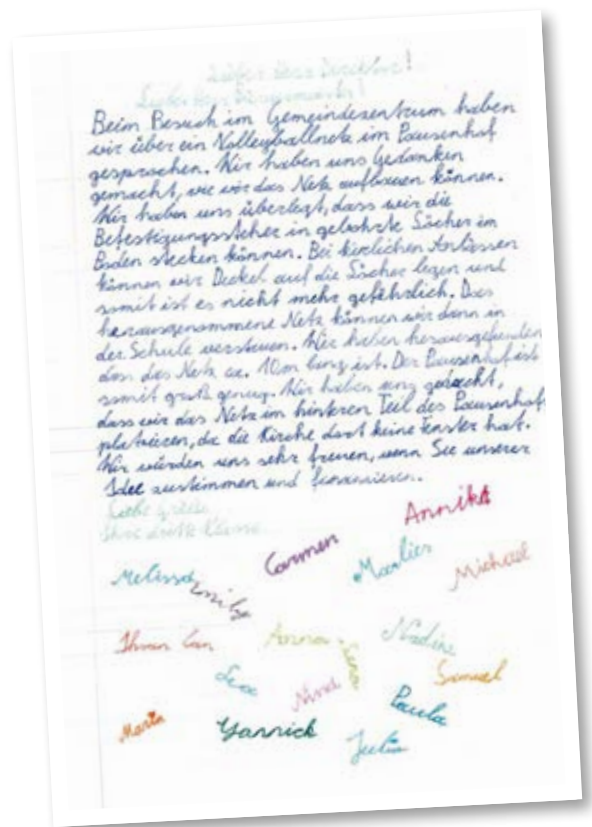 Lieber Herr Direktor!
Lieber Herr Bürgermeister!
Beim Besuch im Gemeindezentrum haben
wir über ein Volleyballnetz im Pausenhof
gesprochen. Wir haben uns Gedanken
gemacht, wie wir das Netz aufbauen können.
Wir haben uns überlegt, dass wir die
Befestigungsstecher in gebohrte Löcher im
Boden stecken können. Bei kirchlichen Anlässen
können wir Deckel auf die Löcher legen und
somit ist es nicht mehr gefährlich. Das
herausgenommene Netz können wir dann in
der Schule verstauen. Wir haben herausgefunden
das das Netz ca. 10m lang ist. Der Pausenhof ist
somit groß genug. Wir haben uns gedacht,
dass wir das Netz im hinteren Teil des Pausenhofs
platzieren, da die Kirche dort keine Fenster hat.
Wir würden uns sehr freuen, wenn Sie unserer
Idee zustimmen und finanzieren.
Liebe Grüße
Ihre dritte Klasse
Annika
Carmen
Marlies
Michael
Melissa
Emily
Ihvan Can
Anna-Lena
Nadine
Lea
Nina
Samuel
Paula
Maria
Yannick
Julia